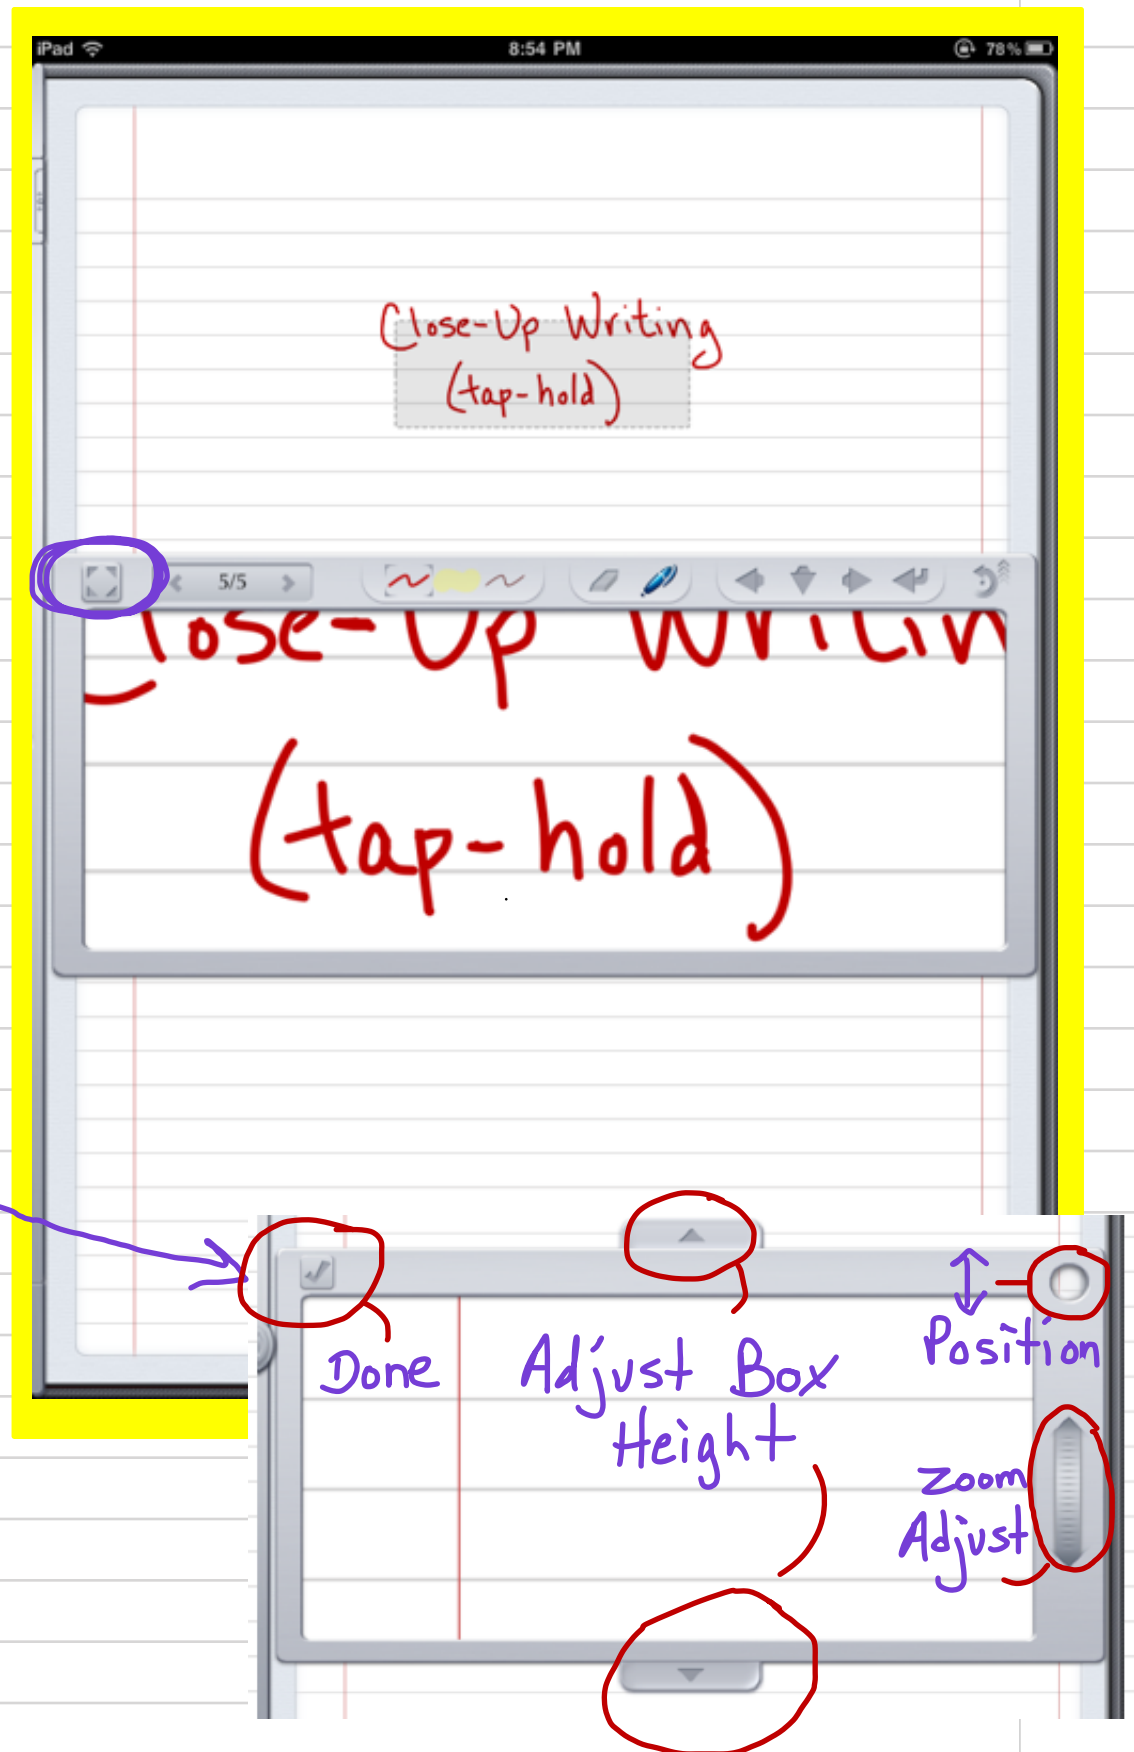 iPad 8:54 PM 78%
Close-Up Writing
(tap-hold)
5/5
lose-Up Writin
(tap-hold)
Done
Adjust Box
Height
Position
Zoom
Adjust